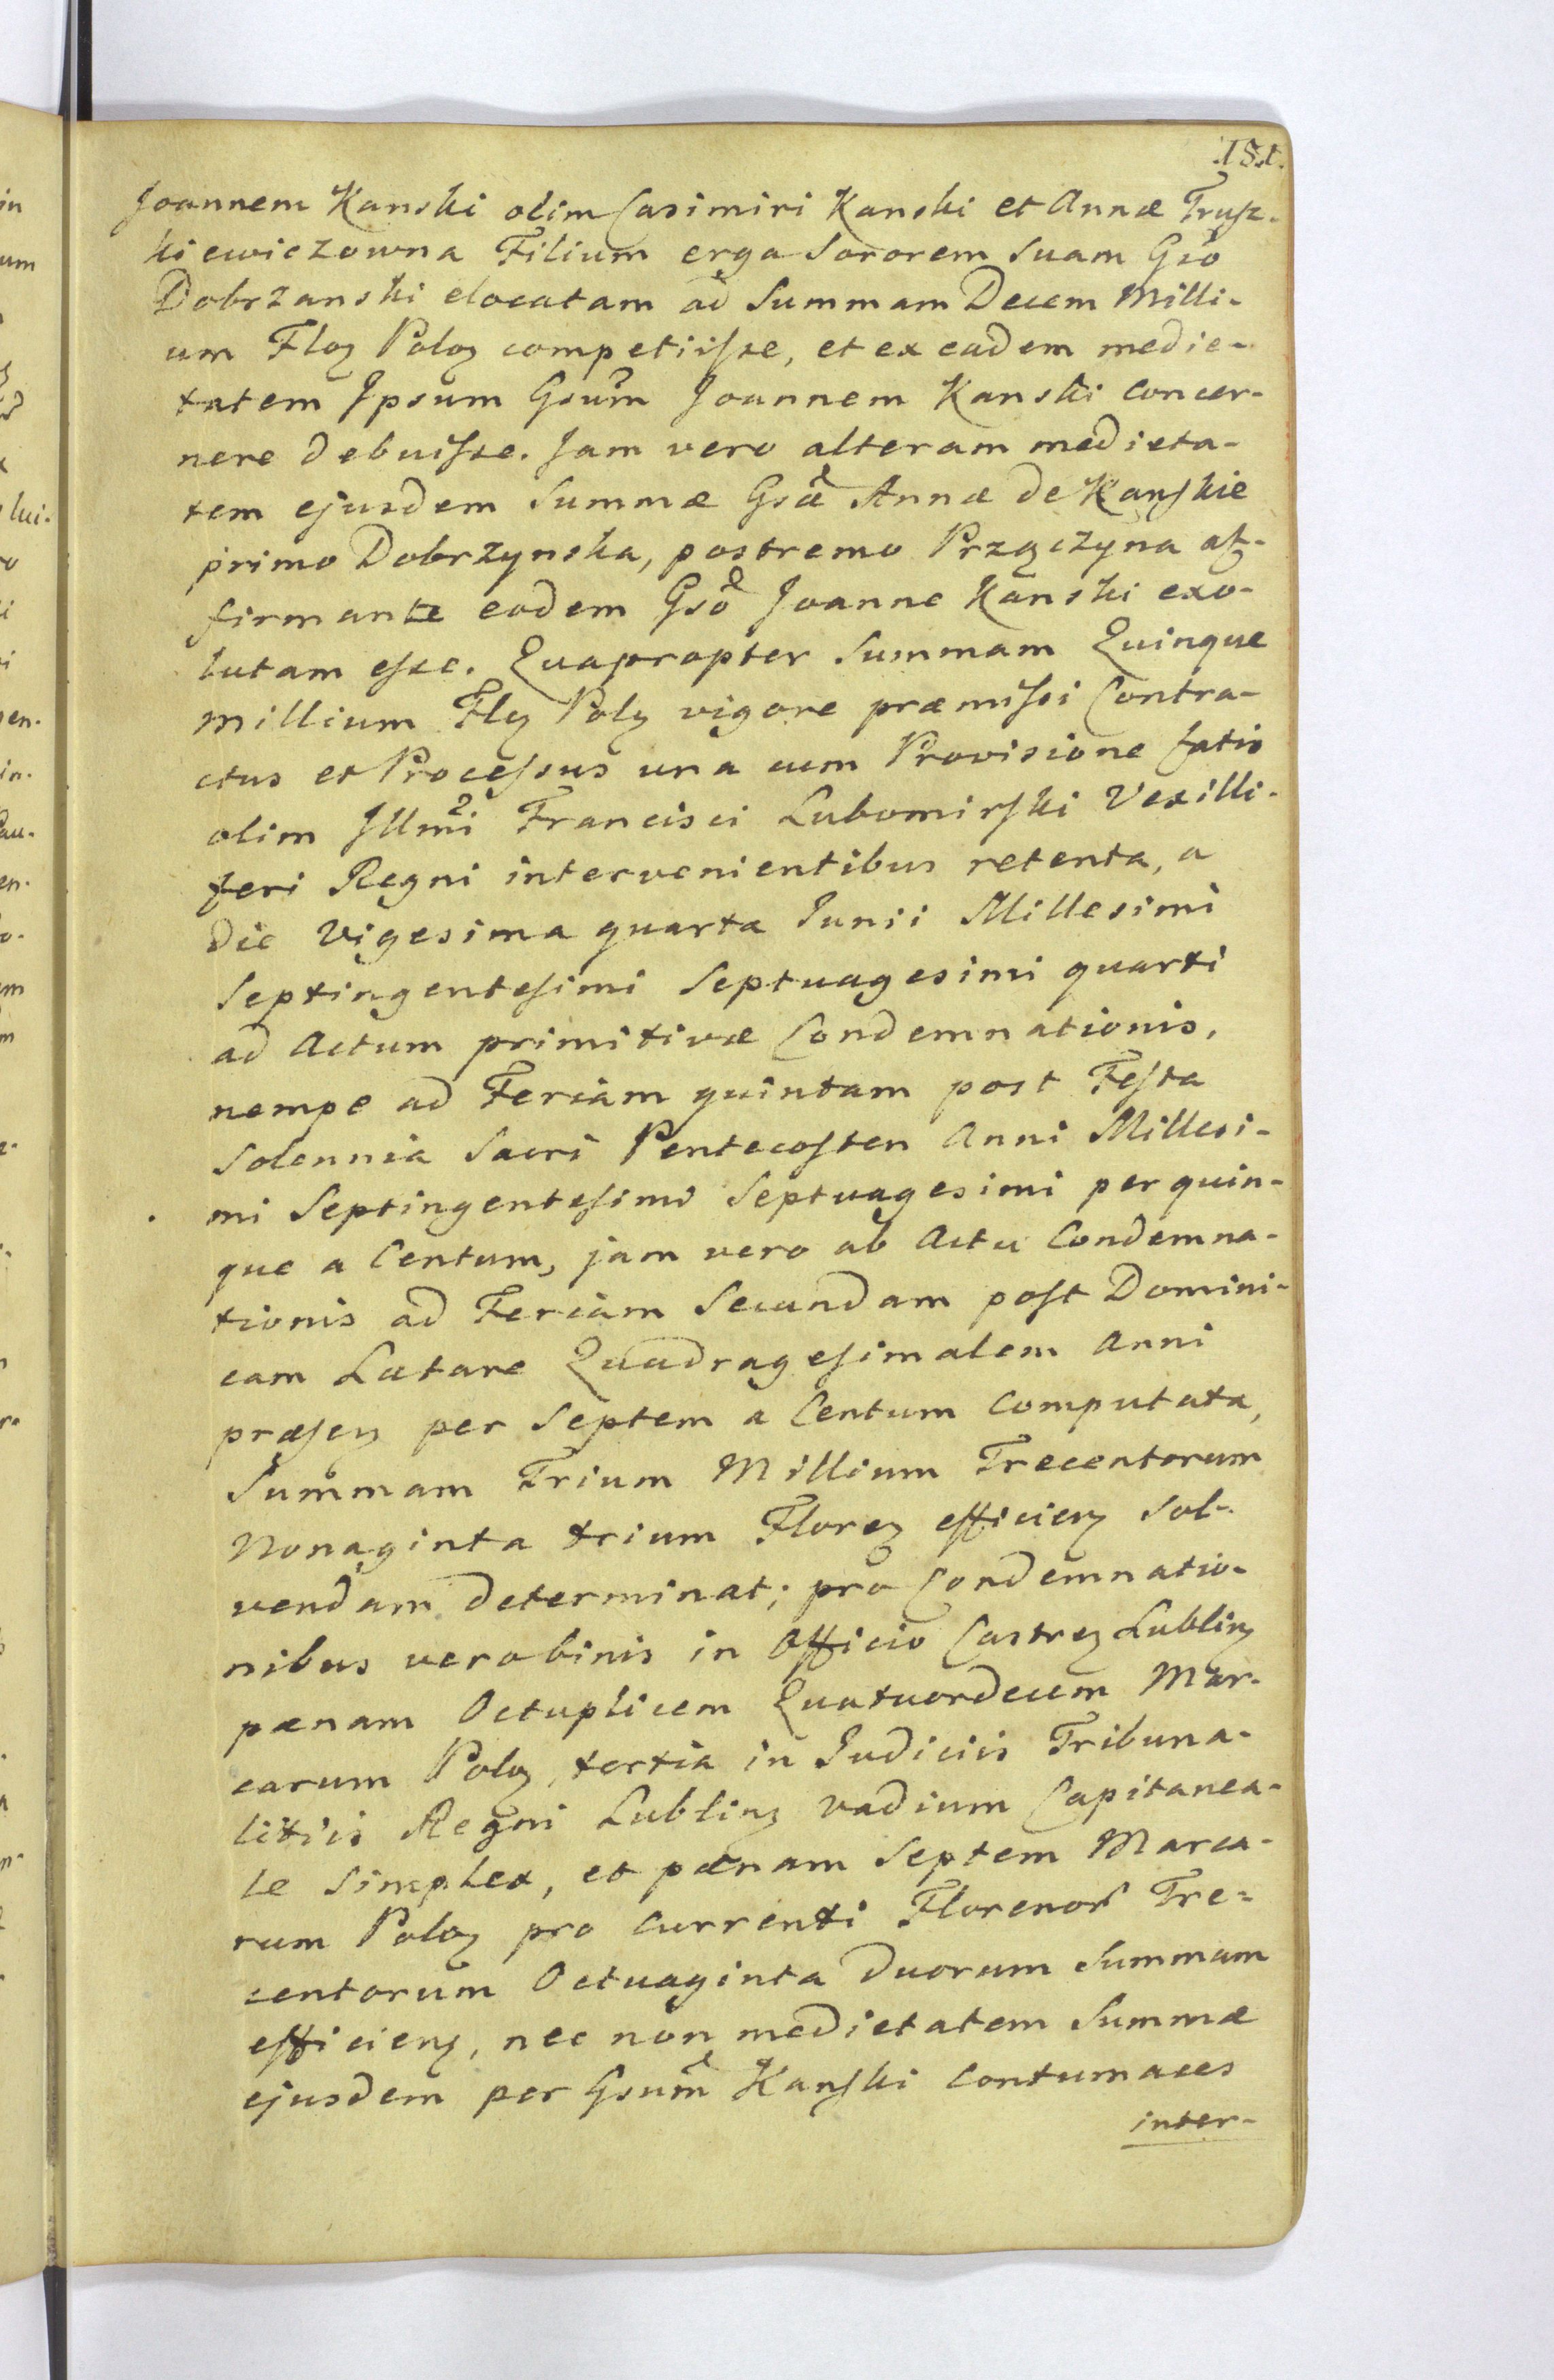 151.
Joannem Kanski olim Casimiri Kanski et Annæ Trusz-
kiewiczowna Filium erga Sororem Suam Gso
Dobrzanski elocatam ad Summam Decem Milli-
um Floꝫ Poloꝫ competiisse, et ex eadem medie-
tatem Ipsum Gsum Joannem Kanski concer-
nere debuisse. Jam vero alteram medieta-
tem ejusdem Summæ Gsæ Annæ de Kanskie
primo Dobrzynska, postremo Przączyna af-
firmante eodem Gso Joanne Kanski exo-
lutam esse. Quapropter Summam Quinque
Millium Flꝫ Polꝫ vigore præmissi Contra-
ctus et Processus una cum Provisione fatis
olim Illmi Francisci Lubomirski Vexilli-
feri Regni intervenientibus retenta, a
die Vigesima quarta Junii Millesimi
Septingentesimi Septuagesimi quarti
ad Actum primitivæ Condemnationis,
nempe ad Feriam quintam post Festa
Solennia Sacri Pentecosten Anni Millesi-
mi Septingentesimi Septuagesimi per quin-
que a Centum, jam vero ab Actu Condemna-
tionis ad Feriam Secundam post Domini-
cam Lætare Quadragesimalem Anni
præseꝫ per Septem a Centum Computata,
Summam Trium Millium Trecentorum
Nonaginta trium Floreꝫ efficieꝫ Sol-
vendam determinat; pro Condemnatio-
nibus vero binis in Officio Castreꝫ Lubliꝫ
pænam Octuplicem Quatuordecem Mar-
carum Poloꝫ, tertia in Judiciis Tribuna-
litiis Regni Lubliꝫ Vadium Capitanea-
le Simplex, et pænam Septem Marca-
rum Poloꝫ pro currenti Florenor Tre-
centorum Octuaginta duorum Summam
efficienꝫ, nec non medietatem Summæ
ejusdem per Gsum Kanski Contumaces
inter-